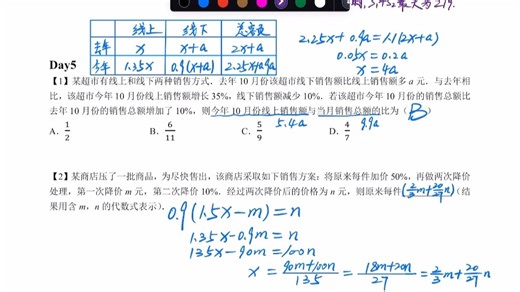 则, 3, 4
线上 线下 总销售
去年 x x+a 2x+a
今年 1.35x 0.9(x+a) 2.25x+0.9a
2.25x+0.9a=1.1(2x+a)
0.05x=0.2a
x=4a
Day5
【1】某超市有线上和线下两种销售方式. 去年 10 月份该超市线下销售额比线上销售额多 a 元. 与去年相
比, 该超市今年 10 月份线上销售额增长 35%, 线下销售额减少 10%. 若该超市今年 10 月份的销售总额比
去年 10 月份的销售总额增加了 10%, 则今年 10 月份线上销售额与当月销售总额的比为 ( B )
5.4a 9.9a
A. 1/2 B. 6/11 C. 5/9 D. 4/7
【2】某商店压了一批商品, 为尽快售出, 该商店采取如下销售方案: 将原来每件加价 50%, 再做两次降价
处理, 第一次降价 m 元, 第二次降价 10%. 经过两次降价后的价格为 n 元, 则原来每件(2/3m+20/27n)(结
果用含 m, n 的代数式表示).
0.9(1.5x-m)=n
1.35x-0.9m=n
135x-90m=100n
x=90m+100n/135=18m+20n/27=2/3m+20/27n